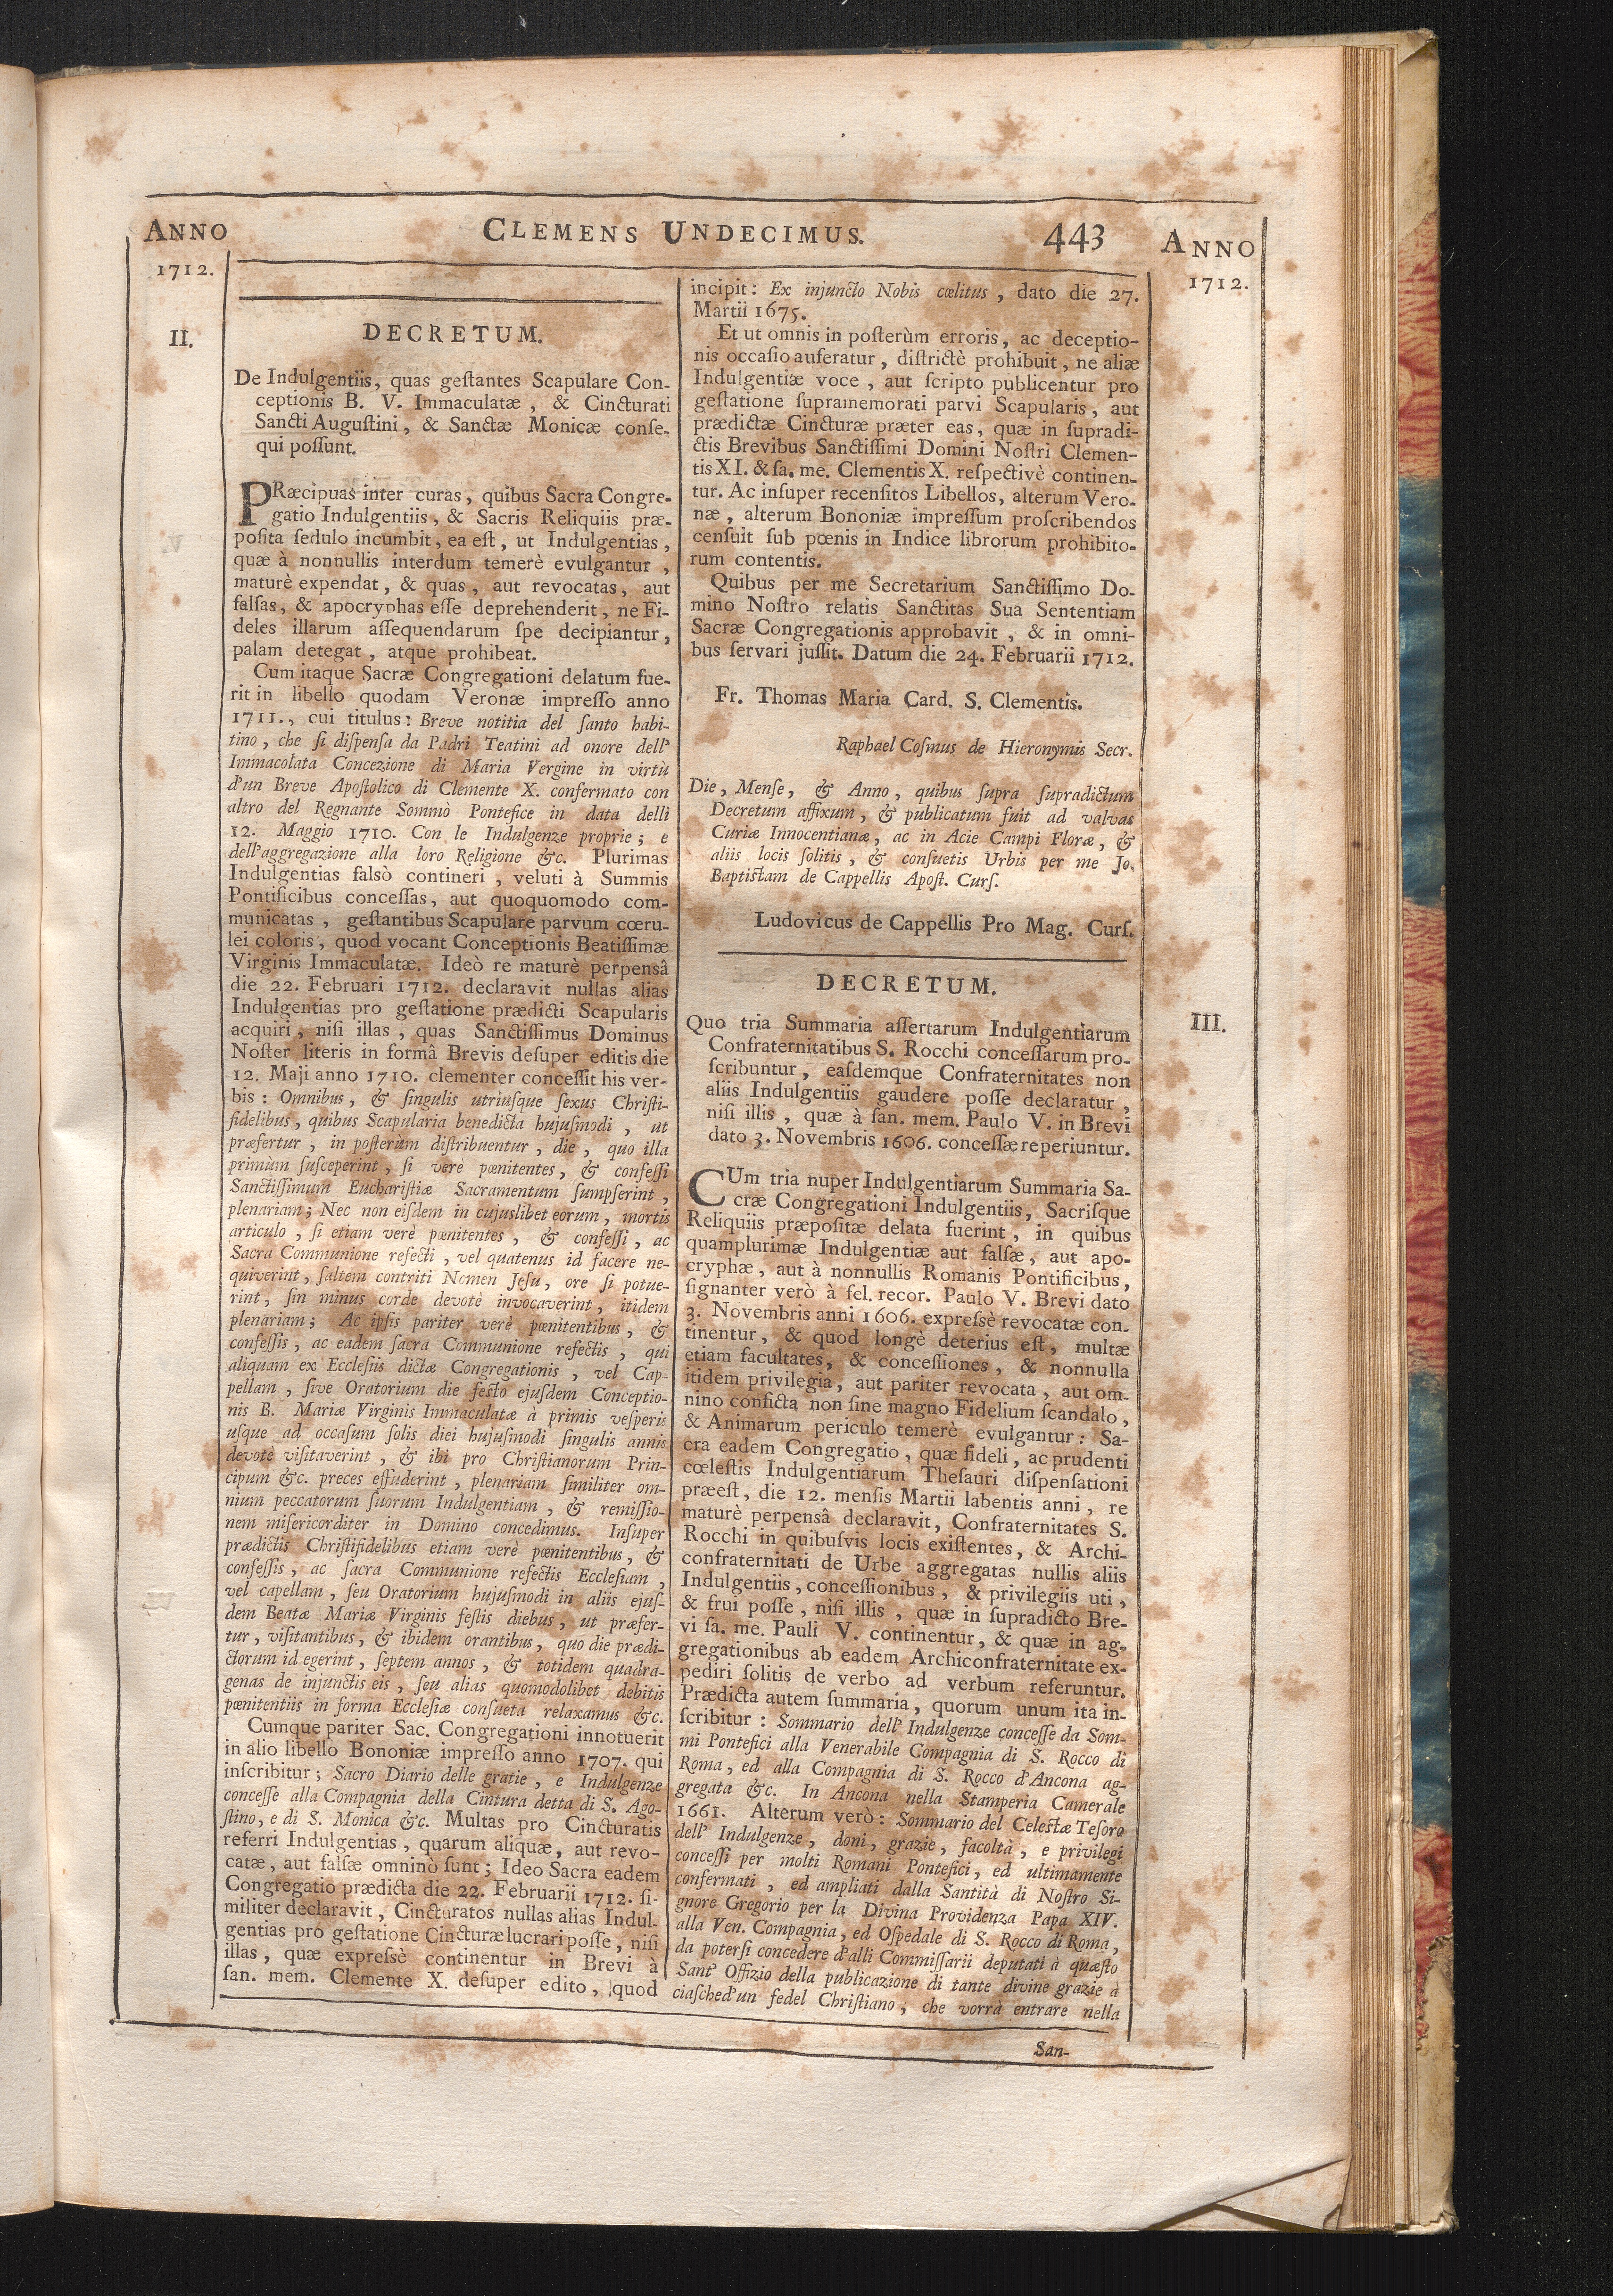 ANNO
1712.
CLEMENS UNDECIMUS.
443
ANNO
1712.
II.
DECRETUM.
De Indulgentiis, quas geſtantes Scapulare Con-
ceptionis B. V. Immaculatæ, & Cincturati
Sancti Auguſtini, & Sanctæ Monicæ conſe-
qui poſſunt.
PRæcipuas inter curas, quibus Sacra Congre-
gatio Indulgentiis, & Sacris Reliquiis præ-
poſita ſedulo incumbit, ea eſt, ut Indulgentias,
quæ à nonnullis interdum temerè evulgantur,
maturè expendat, & quas, aut revocatas, aut
falſas, & apocryphas eſſe deprehenderit, ne Fi-
deles illarum aſſequendarum ſpe decipiantur,
palam detegat, atque prohibeat.
Cum itaque Sacræ Congregationi delatum fue-
rit in libello quodam Veronæ impreſſo anno
1711., cui titulus: Breve notitia del ſanto habi-
tino, che ſi diſpenſa da Padri Teatini ad onore dell'
Immacolata Concezione di Maria Vergine in virtù
d'un Breve Apoſtolico di Clemente X. confermato con
altro del Regnante Sommò Pontefice in data delli
12. Maggio 1710. Con le Indulgenze proprie; e
dell'aggregazione alla loro Religione &c. Plurimas
Indulgentias falsò contineri, veluti à Summis
Pontificibus conceſſas, aut quoquomodo com-
municatas, geſtantibus Scapulare parvum cœru-
lei coloris, quod vocant Conceptionis Beatiſſimæ
Virginis Immaculatæ. Ideò re maturè perpensâ
die 22. Februari 1712. declaravit nullas alias
Indulgentias pro geſtatione prædicti Scapularis
acquiri, niſi illas, quas Sanctiſſimus Dominus
Noſter literis in formâ Brevis deſuper editis die
12. Maji anno 1710. clementer conceſſit his ver-
bis: Omnibus, & ſingulis utriuſque ſexus Chriſti-
fidelibus, quibus Scapularia benedicta hujuſmodi, ut
præfertur, in poſterùm diſtribuentur, die, quo illa
primùm ſuſceperint, ſi verè pœnitentes, & confeſſi
Sanctiſſimum Euchariſtiæ Sacramentum ſumpſerint,
plenariam; Nec non eiſdem in cujuslibet eorum, mortis
articulo, ſi etiam verè pœnitentes, & confeſſi, ac
Sacra Communione refecti, vel quatenus id facere ne-
quiverint, ſaltem contriti Nomen Jeſu, ore ſi potue-
rint, ſin minus corde devotè invocaverint, itidem
plenariam; Ac ipſis pariter verè pœnitentibus, &
confeſſis, ac eadem ſacra Communione refectis, qui
aliquam ex Eccleſiis dictæ Congregationis, vel Cap-
pellam, ſive Oratorium die feſto ejuſdem Conceptio-
nis B. Mariæ Virginis Immaculatæ à primis veſperis
uſque ad occaſum ſolis diei hujuſmodi ſingulis annis
devotè viſitaverint, & ibi pro Chriſtianorum Prin-
cipum &c. preces effuderint, plenariam ſimiliter om-
nium peccatorum ſuorum Indulgentiam, & remiſſio-
nem miſericorditer in Domino concedimus. Inſuper
prædictis Chriſtifidelibus etiam verè pœnitentibus, &
confeſſis, ac ſacra Communione refectis Eccleſiam,
vel capellam, ſeu Oratorium hujuſmodi in aliis ejuſ-
dem Beatæ Mariæ Virginis feſtis diebus, ut præfer-
tur, viſitantibus, & ibidem orantibus, quo die prædi-
ctorum id egerint, ſeptem annos, & totidem quadra-
genas de injunctis eis, ſeu alias quomodolibet debitis
pœnitentiis in forma Eccleſiæ conſueta relaxamus &c.
Cumque pariter Sac. Congregationi innotuerit
in alio libello Bononiæ impreſſo anno 1707. qui
inſcribitur; Sacro Diario delle gratie, e Indulgenze
conceſſe alla Compagnia della Cintura detta di S. Ago-
ſtino, e di S. Monica &c. Multas pro Cincturatis
referri Indulgentias, quarum aliquæ, aut revo-
catæ, aut falſæ omninò ſunt; Ideo Sacra eadem
Congregatio prædicta die 22. Februarii 1712. ſi-
militer declaravit, Cincturatos nullas alias Indul-
gentias pro geſtatione Cincturæ lucrari poſſe, niſi
illas, quæ expreſsè continentur in Brevi à
ſan. mem. Clemente X. deſuper edito, quod
incipit: Ex injuncto Nobis cœlitus, dato die 27.
Martii 1675.
Et ut omnis in poſterùm erroris, ac deceptio-
nis occaſio auferatur, diſtrictè prohibuit, ne aliæ
Indulgentiæ voce, aut ſcripto publicentur pro
geſtatione ſupramemorati parvi Scapularis, aut
prædictæ Cincturæ præter eas, quæ in ſupradi-
ctis Brevibus Sanctiſſimi Domini Noſtri Clemen-
tis XI. & ſa. me. Clementis X. reſpectivè continen-
tur. Ac inſuper recenſitos Libellos, alterum Vero-
næ, alterum Bononiæ impreſſum proſcribendos
cenſuit ſub pœnis in Indice librorum prohibito-
rum contentis.
Quibus per me Secretarium Sanctiſſimo Do-
mino Noſtro relatis Sanctitas Sua Sententiam
Sacræ Congregationis approbavit, & in omni-
bus ſervari juſſit. Datum die 24. Februarii 1712.
Fr. Thomas Maria Card. S. Clementis.
Raphael Coſmus de Hieronymis Secr.
Die, Menſe, & Anno, quibus ſupra ſupradictum
Decretum affixum, & publicatum fuit ad valvas
Curiæ Innocentianæ, ac in Acie Campi Floræ, &
aliis locis ſolitis, & conſuetis Urbis per me Jo.
Baptiſtam de Cappellis Apoſt. Curſ.
Ludovicus de Cappellis Pro Mag. Curſ.
III.
DECRETUM.
Quo tria Summaria aſſertarum Indulgentiarum
Confraternitatibus S. Rocchi conceſſarum pro-
ſcribuntur, eaſdemque Confraternitates non
aliis Indulgentiis gaudere poſſe declaratur,
niſi illis, quæ à ſan. mem. Paulo V. in Brevi
dato 3. Novembris 1606. conceſſæ reperiuntur.
CUm tria nuper Indulgentiarum Summaria Sa-
cræ Congregationi Indulgentiis, Sacriſque
Reliquiis præpoſitæ delata fuerint, in quibus
quamplurimæ Indulgentiæ aut falſæ, aut apo-
cryphæ, aut à nonnullis Romanis Pontificibus,
ſignanter verò à fel. recor. Paulo V. Brevi dato
3. Novembris anni 1606. expreſsè revocatæ con-
tinentur, & quod longè deterius eſt, multæ
etiam facultates, & conceſſiones, & nonnulla
itidem privilegia, aut pariter revocata, aut om-
nino conficta non ſine magno Fidelium ſcandalo,
& Animarum periculo temerè evulgantur: Sa-
cra eadem Congregatio, quæ fideli, ac prudenti
cœleſtis Indulgentiarum Theſauri diſpenſationi
præeſt, die 12. menſis Martii labentis anni, re
maturè perpensâ declaravit, Confraternitates S.
Rocchi in quibuſvis locis exiſtentes, & Archi-
confraternitati de Urbe aggregatas nullis aliis
Indulgentiis, conceſſionibus, & privilegiis uti,
& frui poſſe, niſi illis, quæ in ſupradicto Bre-
vi ſa. me. Pauli V. continentur, & quæ in ag-
gregationibus ab eadem Archiconfraternitate ex-
pediri ſolitis de verbo ad verbum referuntur.
Prædicta autem ſummaria, quorum unum ita in-
ſcribitur: Sommario dell' Indulgenze conceſſe da Som-
mi Pontefici alla Venerabile Compagnia di S. Rocco di
Roma, ed alla Compagnia di S. Rocco d'Ancona ag-
gregata &c. In Ancona nella Stamperia Camerale
1661. Alterum verò: Sommario del Celeſtæ Teſoro
dell' Indulgenze, doni, grazie, facoltà, e privilegi
conceſſi per molti Romani Pontefici, ed ultimamente
confermati, ed ampliati dalla Santità di Noſtro Si-
gnore Gregorio per la Divina Providenza Papa XIV.
alla Ven. Compagnia, ed Oſpedale di S. Rocco di Roma,
da poterſi concedere d'alli Commiſſarii deputati à quæſto
Sant' Offizio della publicazione di tante divine grazie à
ciaſched'un fedel Chriſtiano, che vorrà entrare nella
San-